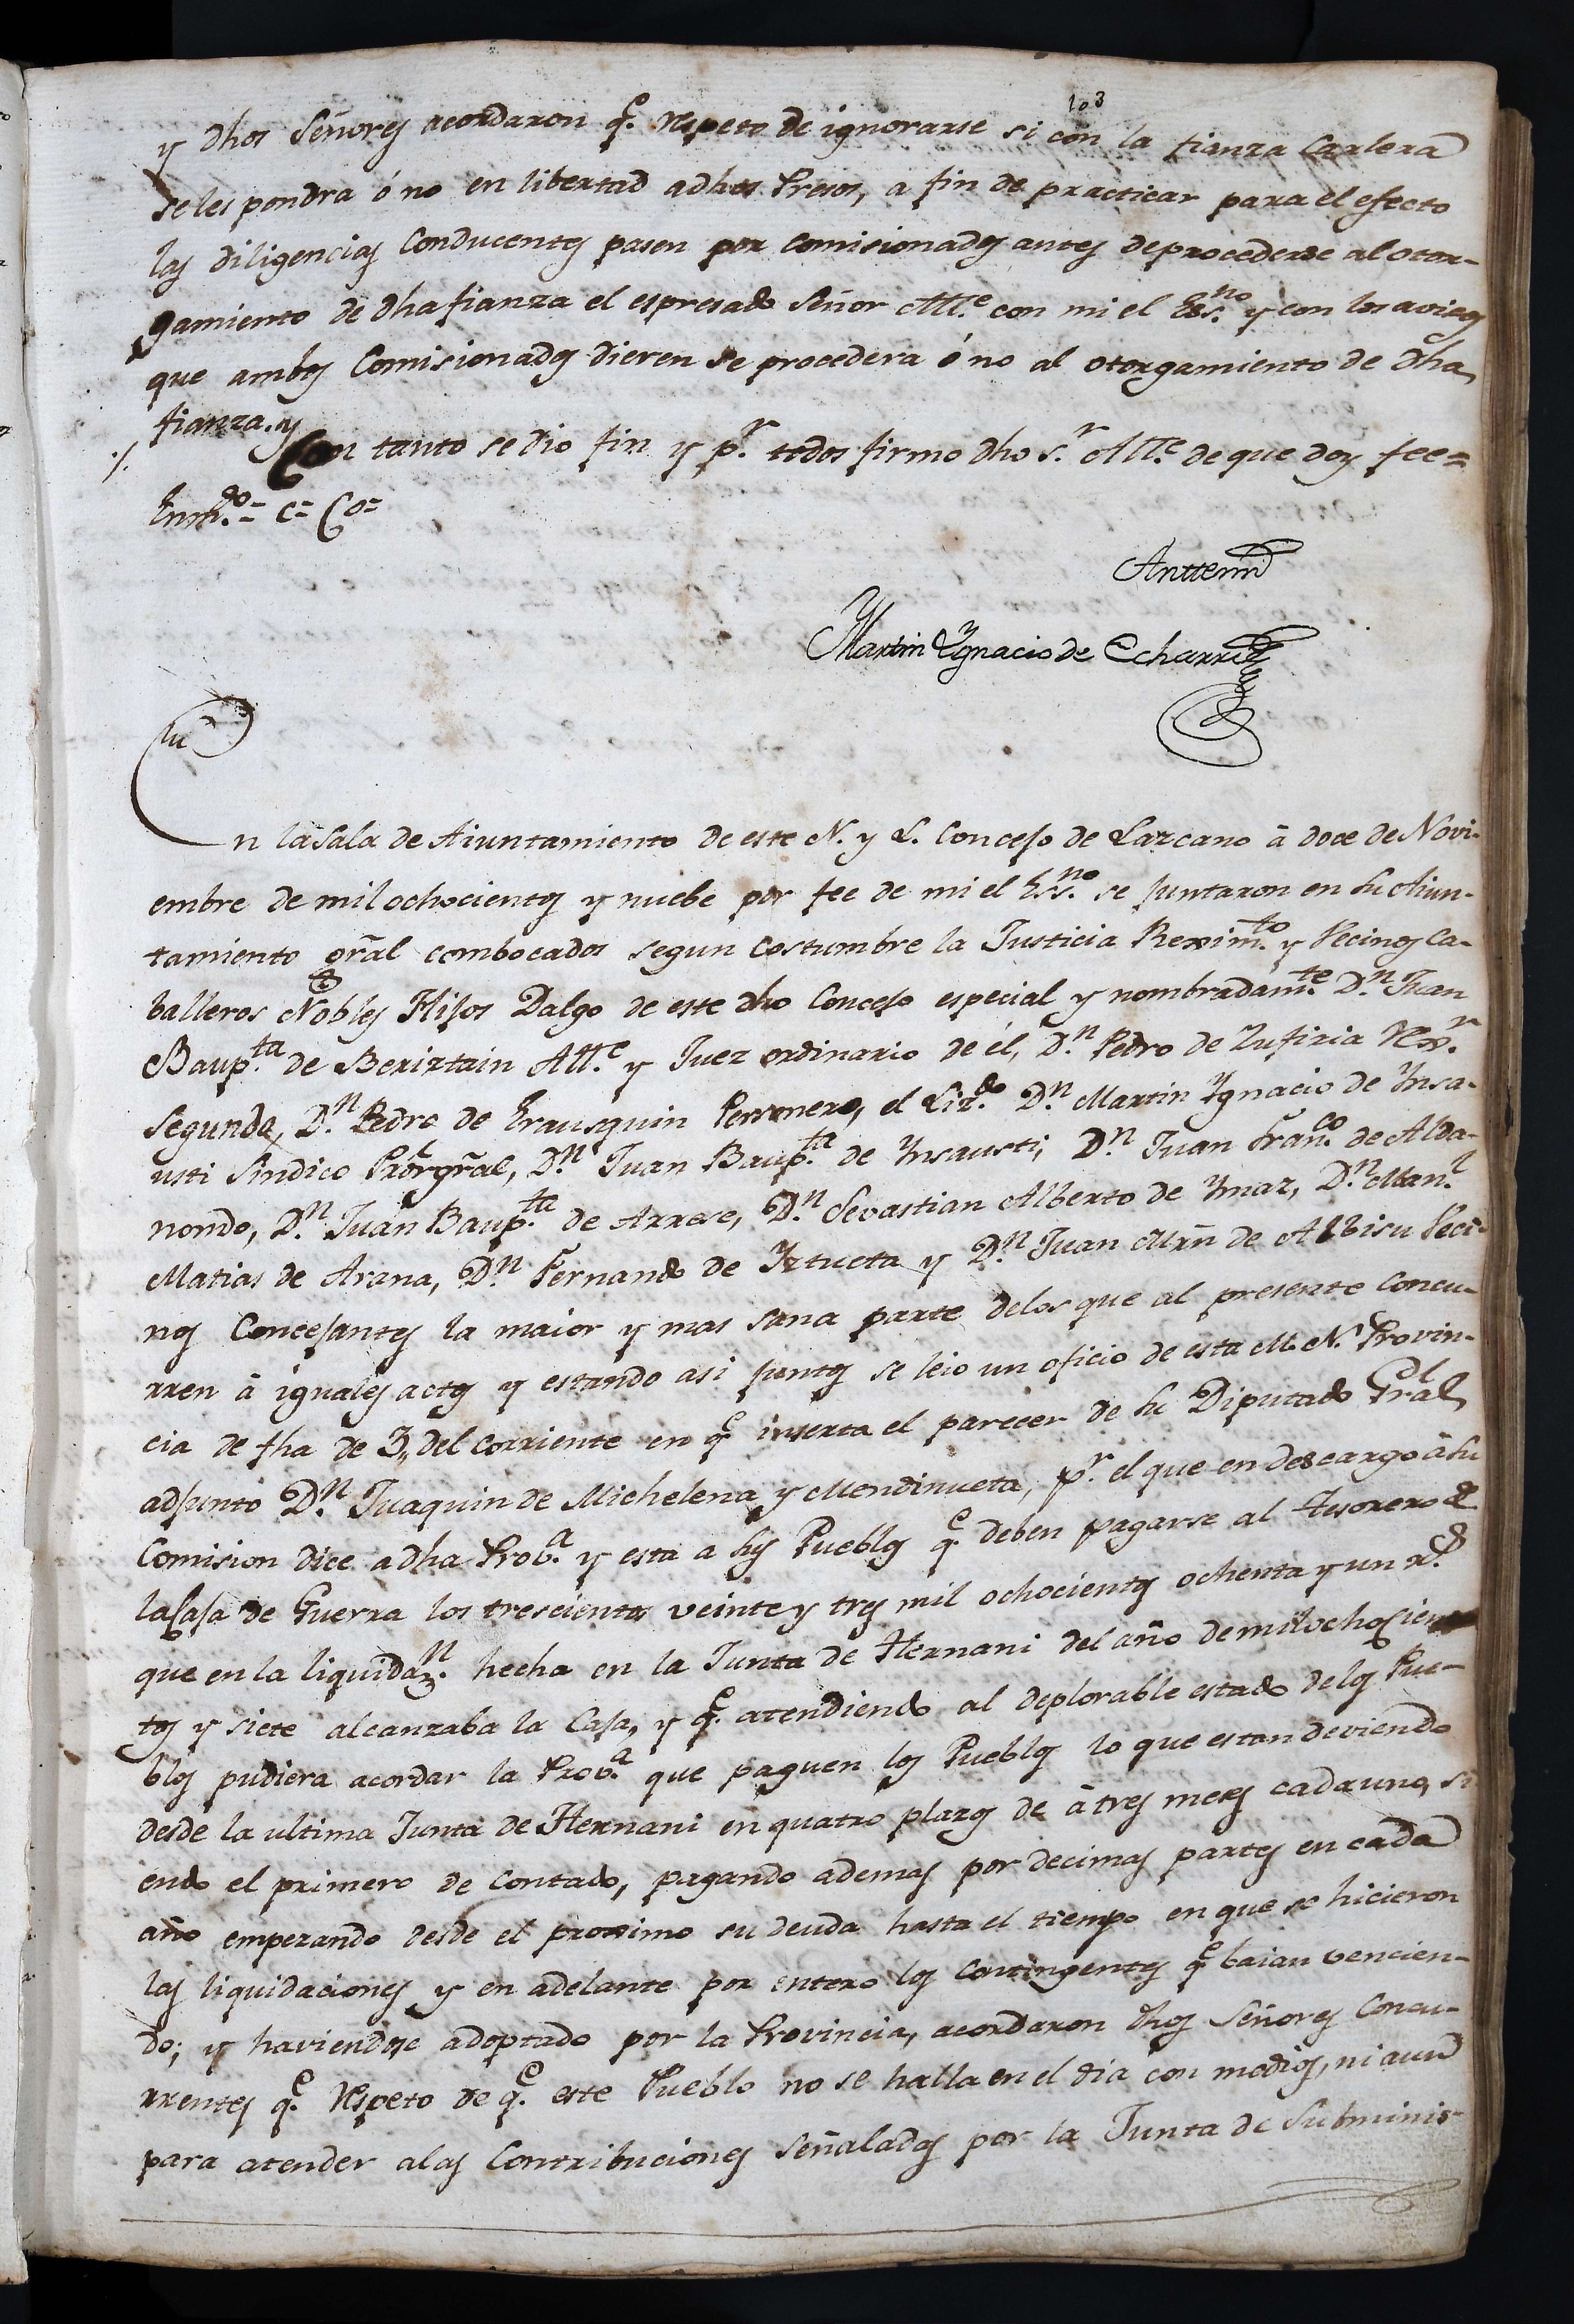 103
y dhos Señores acordaron q.e respeto de ignorarse si con la fianza Carlera
se les pondra ó no en libertad adhos Presos, a fin de practicar para el efecto
las diligencias Conducentes pasen por Comisionados antes deprocederse al otor-
gamiento de dha fianza el espresado Señor Alle. con mi el Ess.no y con los avisos
que ambos Comisionados dieren se procedera ó no al otorgamiento de dha
fianza. y
Con tanto se dio fin y p.r todos firmo dho s.r Alle. de que doy fee=
Enm.do= c= Co=
Anttemi
Martin Ygnacio de Echarri
En la Sala de Aiuntamiento de este N. y L. Concejo de Lazcano â doce de Novi-
embre de mil ochocientos y nuebe por fee de mi el Ess.no se juntaron en su Aiun-
tamiento gral combocados segun costumbre la Justicia Rexim.to y Vecinos Ca-
balleros Nobles Hijos Dalgo de este dho Concejo especial y nombradam.te D.n Juan
Baup.ta de Beriztain Alle. y Juez ordinario de él, D.n Pedro de Zufiria Rex.r
Segundo, D.n Pedro de Erausquin Personero, el Liz.do D.n Martin Ygnacio de Ynsa-
usti Sindico Pror gral, D.n Juan Baup.ta de Ynsausti, D.n Juan Fran.co de Alda-
nondo, D.n Juan Baup.ta de Arrese, D.n Sevastian Alberto de Ymaz, D.n Man.l
Matias de Arana, D.n Fernando de Iztueta y D.n Juan Mrn de Albisu Veci-
nos Concejantes la maior y mas sana parte delos que al presente concu-
rren â iguales actos y estando asi juntos se leio un oficio de esta M. N. Provin-
cia de fha de 3,, del corriente en q.e inserta el parecer de su Diputado Gral
adjunto D.n Juaquin de Michelena y Mendinueta, p.r el que en descargo â su
Comision dice adha Prov.a y esta a sus Pueblos q.e deben pagarse al Tesorero de
la Caja de Guerra los trescientos veinte y tres mil ochocientos ochenta y un r.s
que en la liquidaz.n hecha en la Junta de Hernani del año de mil ochocien-
tos y siete alcanzaba la Caja, y q.e atendiendo al deplorable estado delos Pue-
blos pudiera acordar la Prov.a que paguen los Pueblos lo que estan deviendo
desde la ultima Junta de Hernani en quatro plazos de â tres meses cada uno, si-
endo el primero de Contado, pagando ademas por decimas partes en cada
año empezando desde el proximo su deuda hasta el tiempo en que se hicieron
las liquidaciones y en adelante por entero los Contingentes q.e baian vencien-
do; y haviendose adoptado por la Provincia, acordaron dhos Señores Concu-
rrentes q.e respeto de q.e este Pueblo no se halla en el dia con medios, ni aun
para atender alas Contribuciones señaladas por la Junta de Subminis-